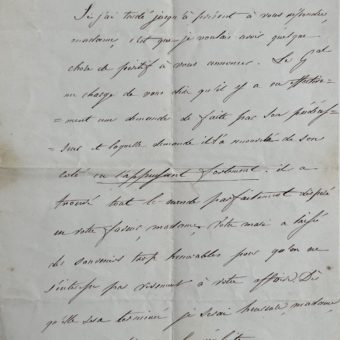 Si j'ai tardé jusqu'à présent à vous répondre,
madame, c'est que je voulais avoir quelque
chose de positif à vous annoncer. Le Gal
me charge de vous dire qu'il y a eu effective=
=ment une demande de faite par son prédéces=
=seur et laquelle demande il l'a renouvelé de son
coté en l'appuyant fortement; il a
trouvé tout le monde parfaitement disposé
en votre faveur, madame, votre mari a laissé
des souvenirs trop honorables pour qu'on ne
s'interesse pas vivement à votre affaire. Dès
qu'elle sera terminée je serai heureuse, madame,